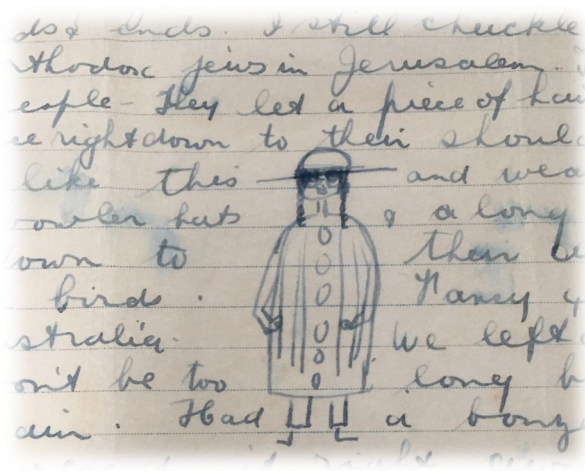 ds & ends. I still chuckle
rthodox jews in Jerusalem.
eople - They let a piece of hai
ce right down to their should
like this and wea
owler hats & a long
own to their
birds. Nancy
stralia. We left
on't be too long b
ain. Had a bonz